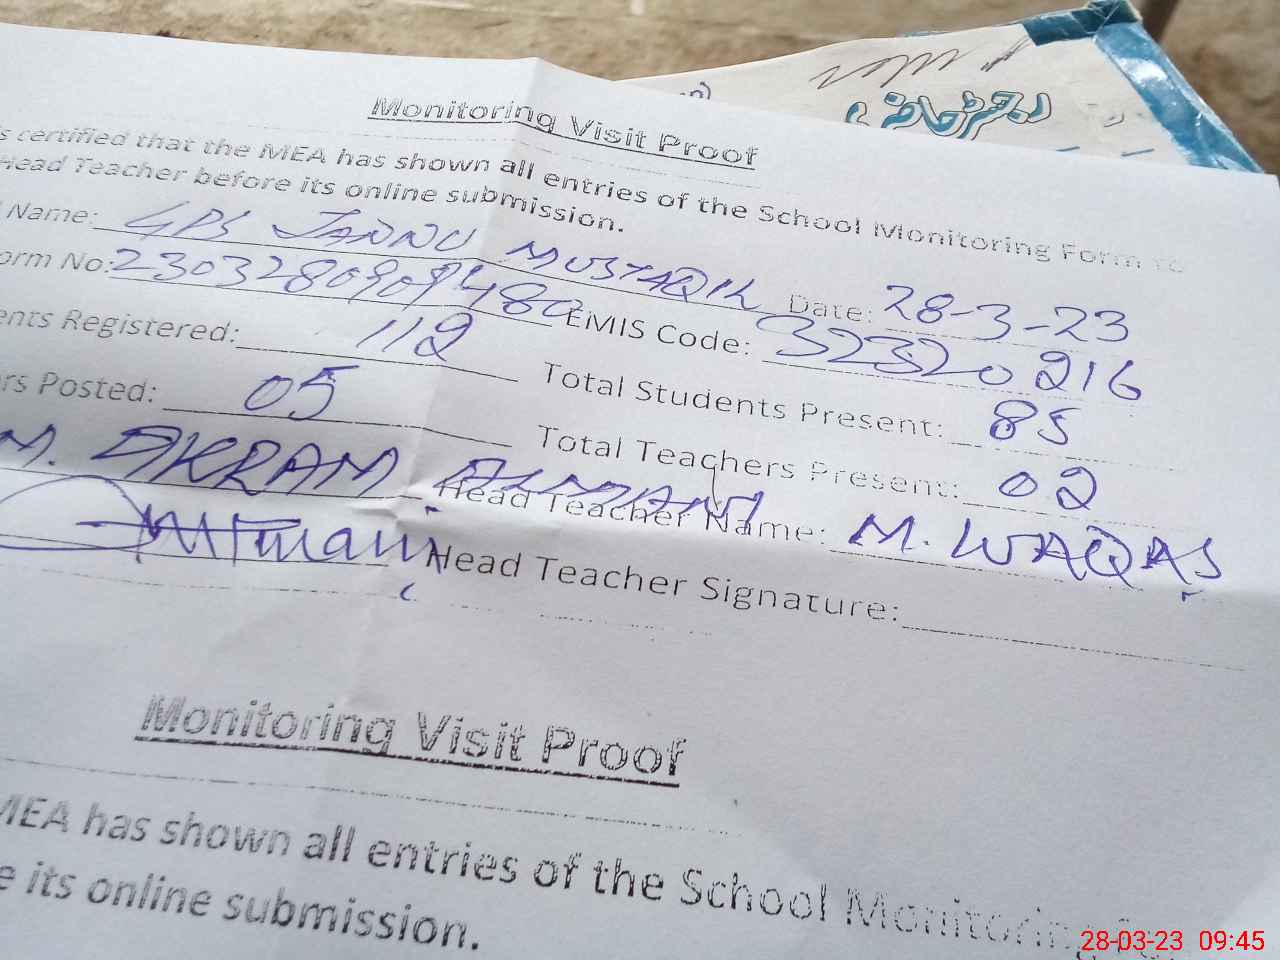 رجسٹر حاضری
Monitoring Visit Proof
s certified that the MEA has shown all entries of the School Monitoring Form to
Head Teacher before its online submission.
Name: GPS JANNU MUSTAQIL Date: 28-3-23
orm No: 2303280909480 EMIS Code: 32320216
ents Registered: 112 Total Students Present: 85
rs Posted: 05 Total Teachers Present: 02
M. AKRAM Head Teacher Name: M. WAQAS
Head Teacher Signature:
Monitoring Visit Proof
MEA has shown all entries of the School Monitoring
e its online submission.
28-03-23 09:45